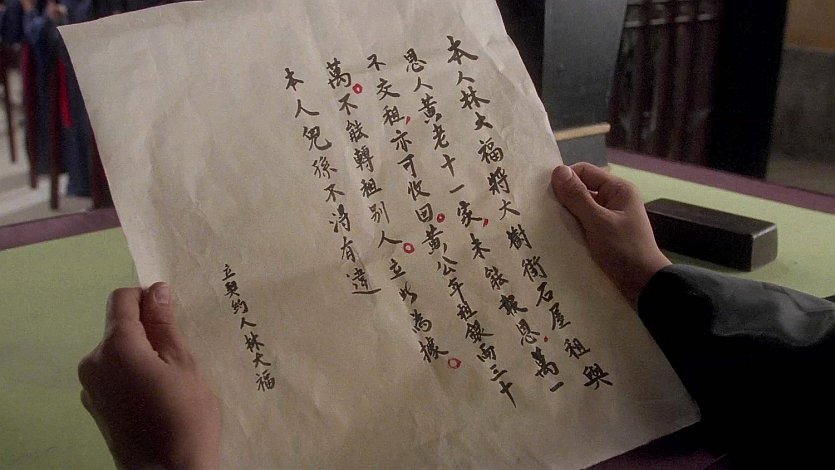 本人林大福將大樹街石屋租與
恩人黃老十一家，未能報恩，萬一
不交租，亦可收回。黃公年租銀兩三十
萬。不能轉租別人。立此為據。
本人兒孫不得有違
立契約人林大福